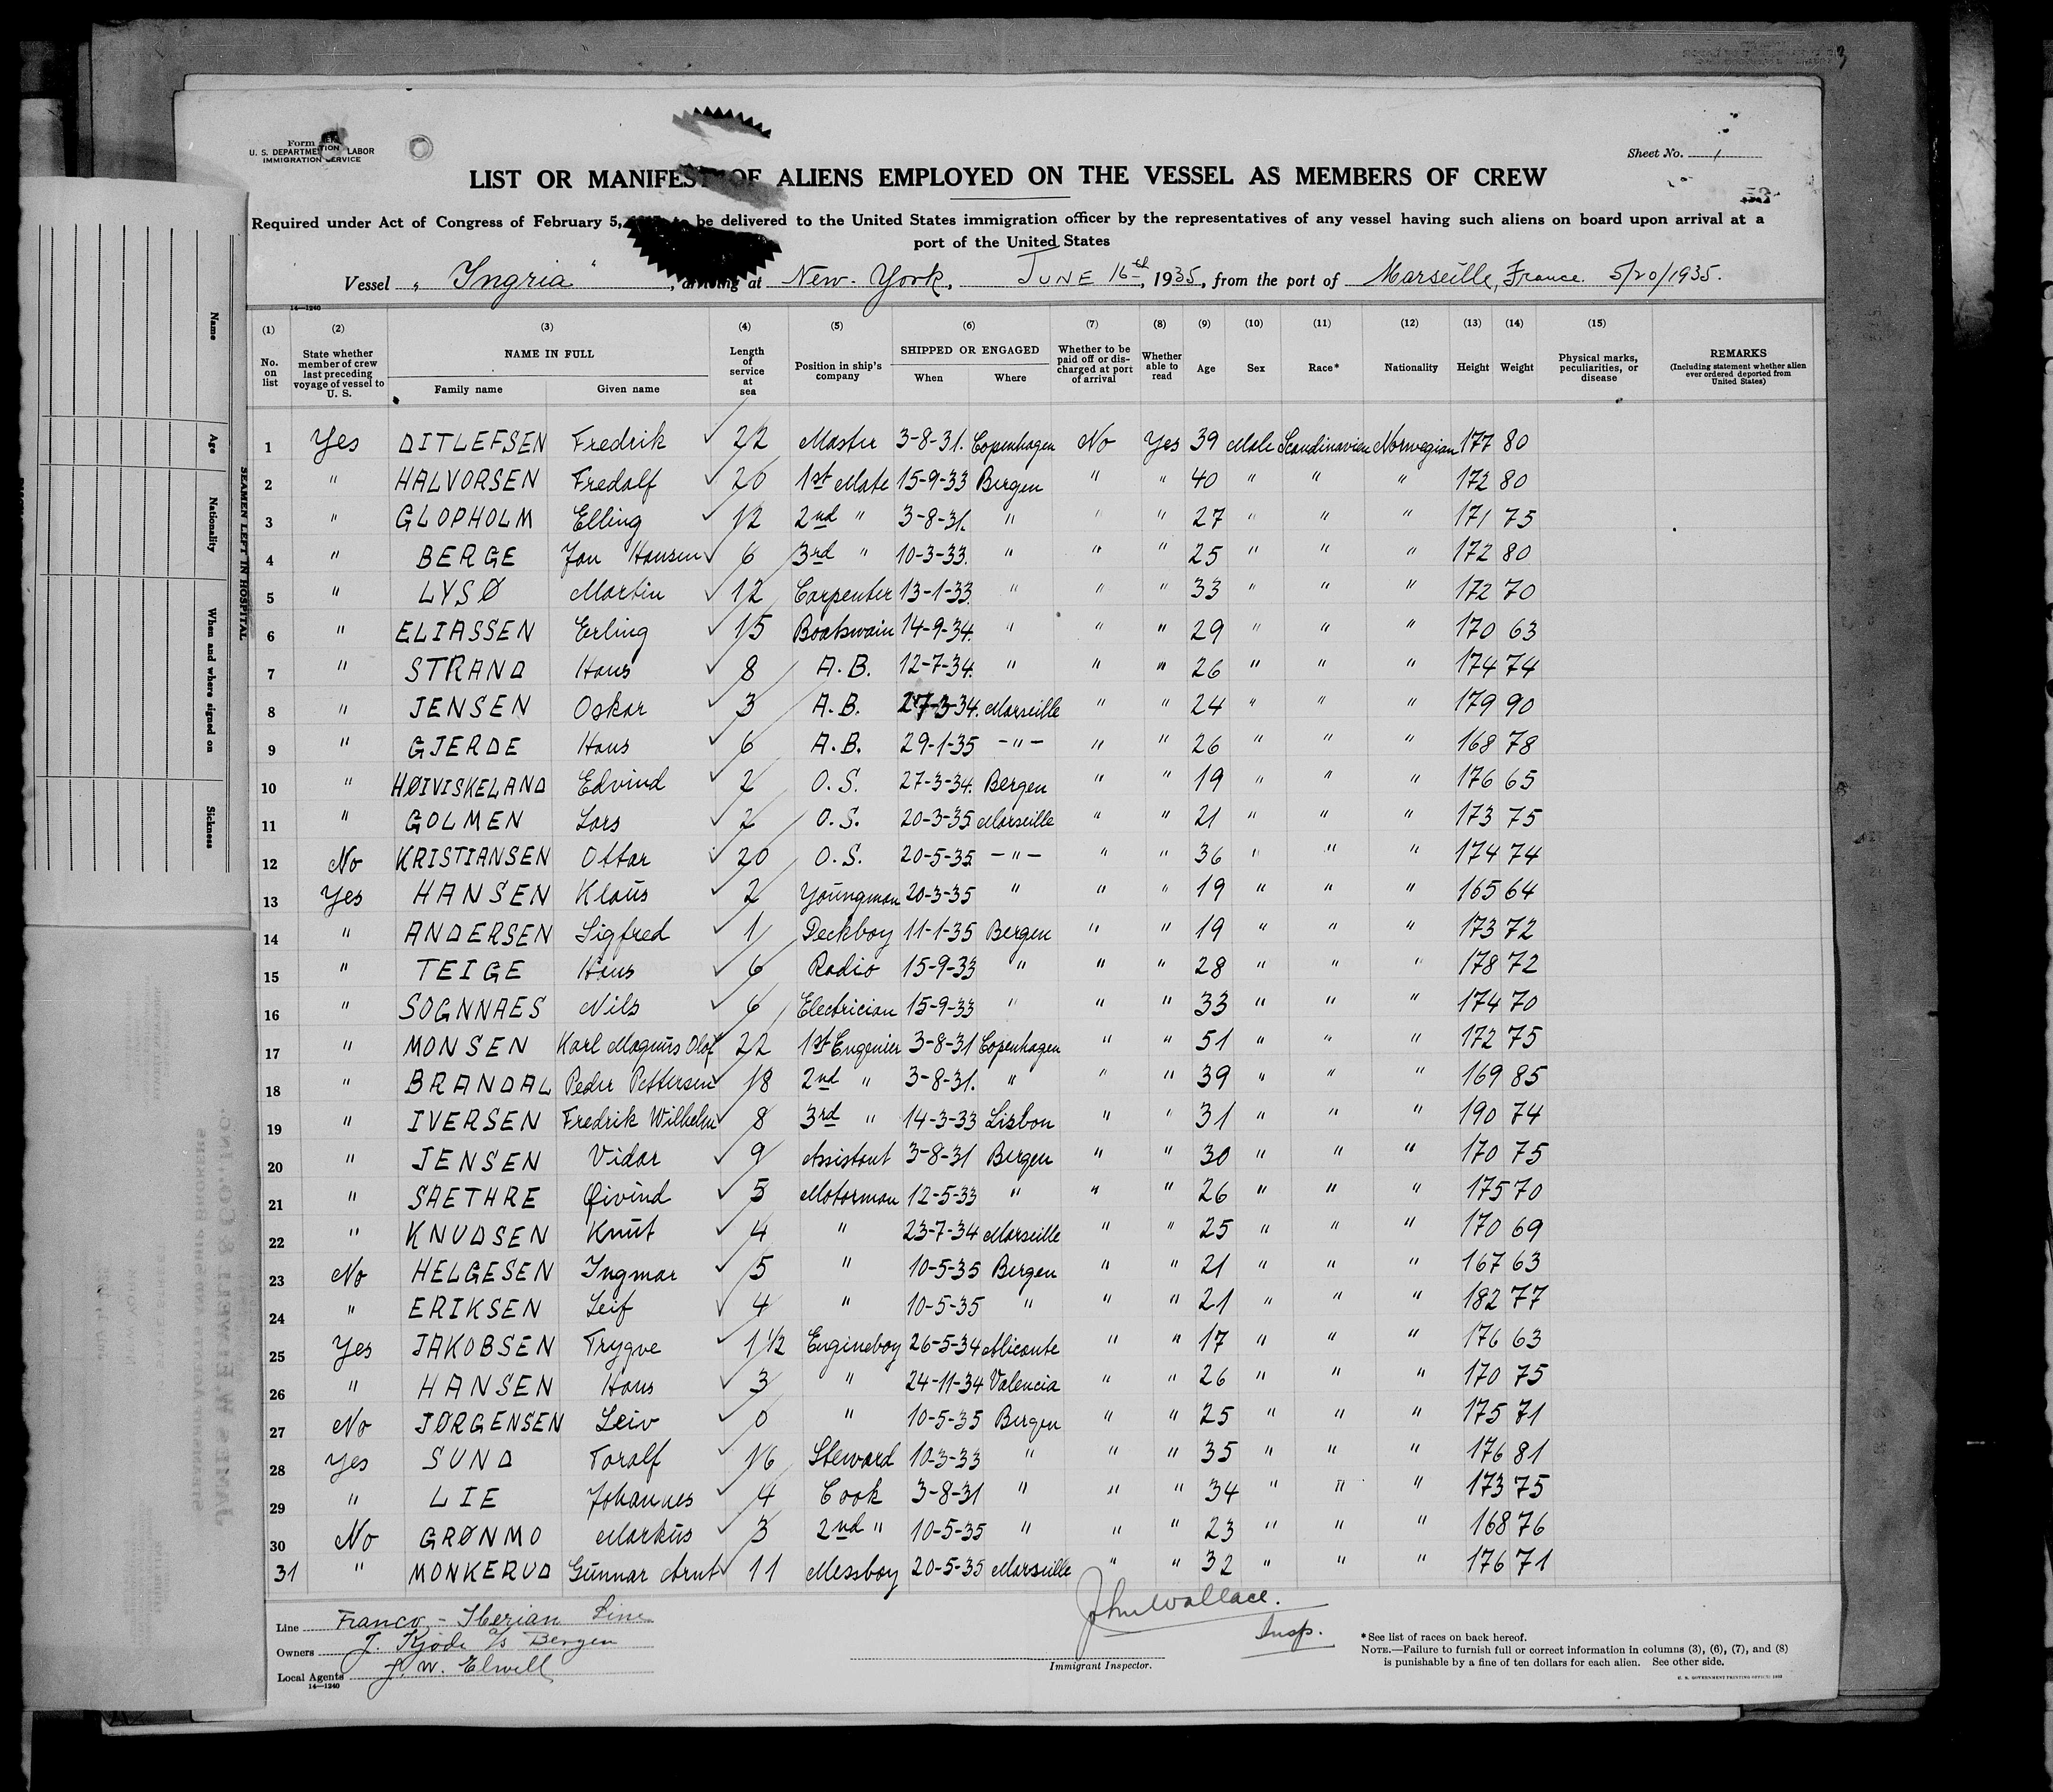 Form
U. S. DEPARTMENT LABOR
IMMIGRATION SERVICE
Sheet No. 1
LIST OR MANIFEST OF ALIENS EMPLOYED ON THE VESSEL AS MEMBERS OF CREW
Required under Act of Congress of February 5, to be delivered to the United States immigration officer by the representatives of any vessel having such aliens on board upon arrival at a
port of the United States
Vessel "Ingria", arriving at New-York, JUNE 16th, 1935, from the port of Marseille, France. 5/20/1935.
14—1240
(1) (2) (3) (4) (5) (6) (7) (8) (9) (10) (11) (12) (13) (14) (15)
No. on list | State whether member of crew last preceding voyage of vessel to U. S. | NAME IN FULL Family name Given name | Length of service at sea | Position in ship's company | SHIPPED OR ENGAGED When Where | Whether to be paid off or discharged at port of arrival | Whether able to read | Age | Sex | Race* | Nationality | Height | Weight | Physical marks, peculiarities, or disease | REMARKS (Including statement whether alien ever ordered deported from United States)
1 Yes DITLEFSEN Fredrik ✓ 22 Master 3-8-31. Copenhagen No Yes 39 Male Scandinavien Norwegian 177 80
2 " HALVORSEN Fredolf ✓ 20 1st Mate 15-9-33 Bergen " " 40 " " " 172 80
3 " GLOPHOLM Elling ✓ 12 2nd " 3-8-31. " " " 27 " " " 171 75
4 " BERGE Jan Hansen ✓ 6 3rd " 10-3-33. " " " 25 " " " 172 80
5 " LYSØ Martin ✓ 12 Carpenter 13-1-33. " " " 33 " " " 172 70
6 " ELIASSEN Erling ✓ 15 Boatswain 14-9-34. " " " 29 " " " 170 63
7 " STRAND Hans ✓ 8 A.B. 12-7-34. " " " 26 " " " 174 74
8 " JENSEN Oskar ✓ 3 A.B. 27-3-34. Marseille " " 24 " " " 179 90
9 " GJERDE Hans ✓ 6 A.B. 29-1-35 -"- " " 26 " " " 168 78
10 " HØIVISKELAND Edvind ✓ 2 O.S. 27-3-34. Bergen " " 19 " " " 176 65
11 " GOLMEN Lars ✓ 2 O.S. 20-3-35 Marseille " " 21 " " " 173 75
12 No KRISTIANSEN Ottar ✓ 20 O.S. 20-5-35 -"- " " 36 " " " 174 74
13 Yes HANSEN Klaus ✓ 2 Youngman 20-3-35 " " " 19 " " " 165 64
14 " ANDERSEN Sigfred ✓ 1 Deckboy 11-1-35 Bergen " " 19 " " " 173 72
15 " TEIGE Hans ✓ 6 Radio 15-9-33 " " " 28 " " " 178 72
16 " SOGNNAES Nils ✓ 6 Electrician 15-9-33 " " " 33 " " " 174 70
17 " MONSEN Karl Magnus Olof 22 1st Engenier 3-8-31 Copenhagen " " 51 " " " 172 75
18 " BRANDAL Peder Pettersen ✓ 18 2nd " 3-8-31. " " " 39 " " " 169 85
19 " IVERSEN Fredrik Wilhelm ✓ 8 3rd " 14-3-33 Lisbon " " 31 " " " 190 74
20 " JENSEN Vidar ✓ 9 Assistant 3-8-31 Bergen " " 30 " " " 170 75
21 " SAETHRE Øivind ✓ 5 Motorman 12-5-33 " " " 26 " " " 175 70
22 " KNUDSEN Knut ✓ 4 " 23-7-34 Marseille " " 25 " " " 170 69
23 No HELGESEN Ingmar ✓ 5 " 10-5-35 Bergen " " 21 " " " 167 63
24 " ERIKSEN Leif ✓ 4 " 10-5-35 " " " 21 " " " 182 77
25 Yes JAKOBSEN Trygve ✓ 1 1/2 Engineboy 26-5-34 Alicante " " 17 " " " 176 63
26 " HANSEN Hans ✓ 3 " 24-11-34 Valencia " " 26 " " " 170 75
27 No JØRGENSEN Leiv ✓ 0 " 10-5-35 Bergen " " 25 " " " 175 71
28 Yes SUND Toralf ✓ 16 Steward 10-3-33 " " " 35 " " " 176 81
29 " LIE Johannes ✓ 4 Cook 3-8-31 " " " 34 " " " 173 75
30 No GRØNMO Markus ✓ 3 2nd " 10-5-35 " " " 23 " " " 168 76
31 " MONKERUD Gunnar Arnt ✓ 11 Messboy 20-5-35 Marseille " " 32 " " " 176 71
Line Franco-Iberian Line
Owners J. Kjöde a/s Bergen
Local Agents J. W. Elwell
14—1240
John Wallace.
Insp.
Immigrant Inspector.
*See list of races on back hereof.
NOTE.—Failure to furnish full or correct information in columns (3), (6), (7), and (8)
is punishable by a fine of ten dollars for each alien. See other side.
Name
Age
Nationality
When and where signed on
Sickness
SEAMEN LEFT IN HOSPITAL
JAMES W. ELWELL & CO., INC.
STEAMSHIP AGENTS AND SHIP BROKERS